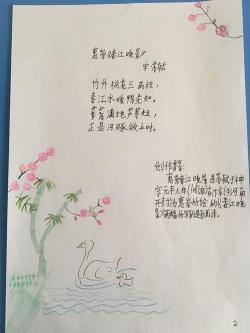 惠崇《春江晚景》
宋 苏轼
竹外桃花三两枝，
春江水暖鸭先知。
蒌蒿满地芦芽短，
正是河豚欲上时。
创作背景：
惠崇春江晚景是苏轼于神
宗元
南
开封)为惠崇所绘的《春江晚
景》两幅所写的题画诗。
2